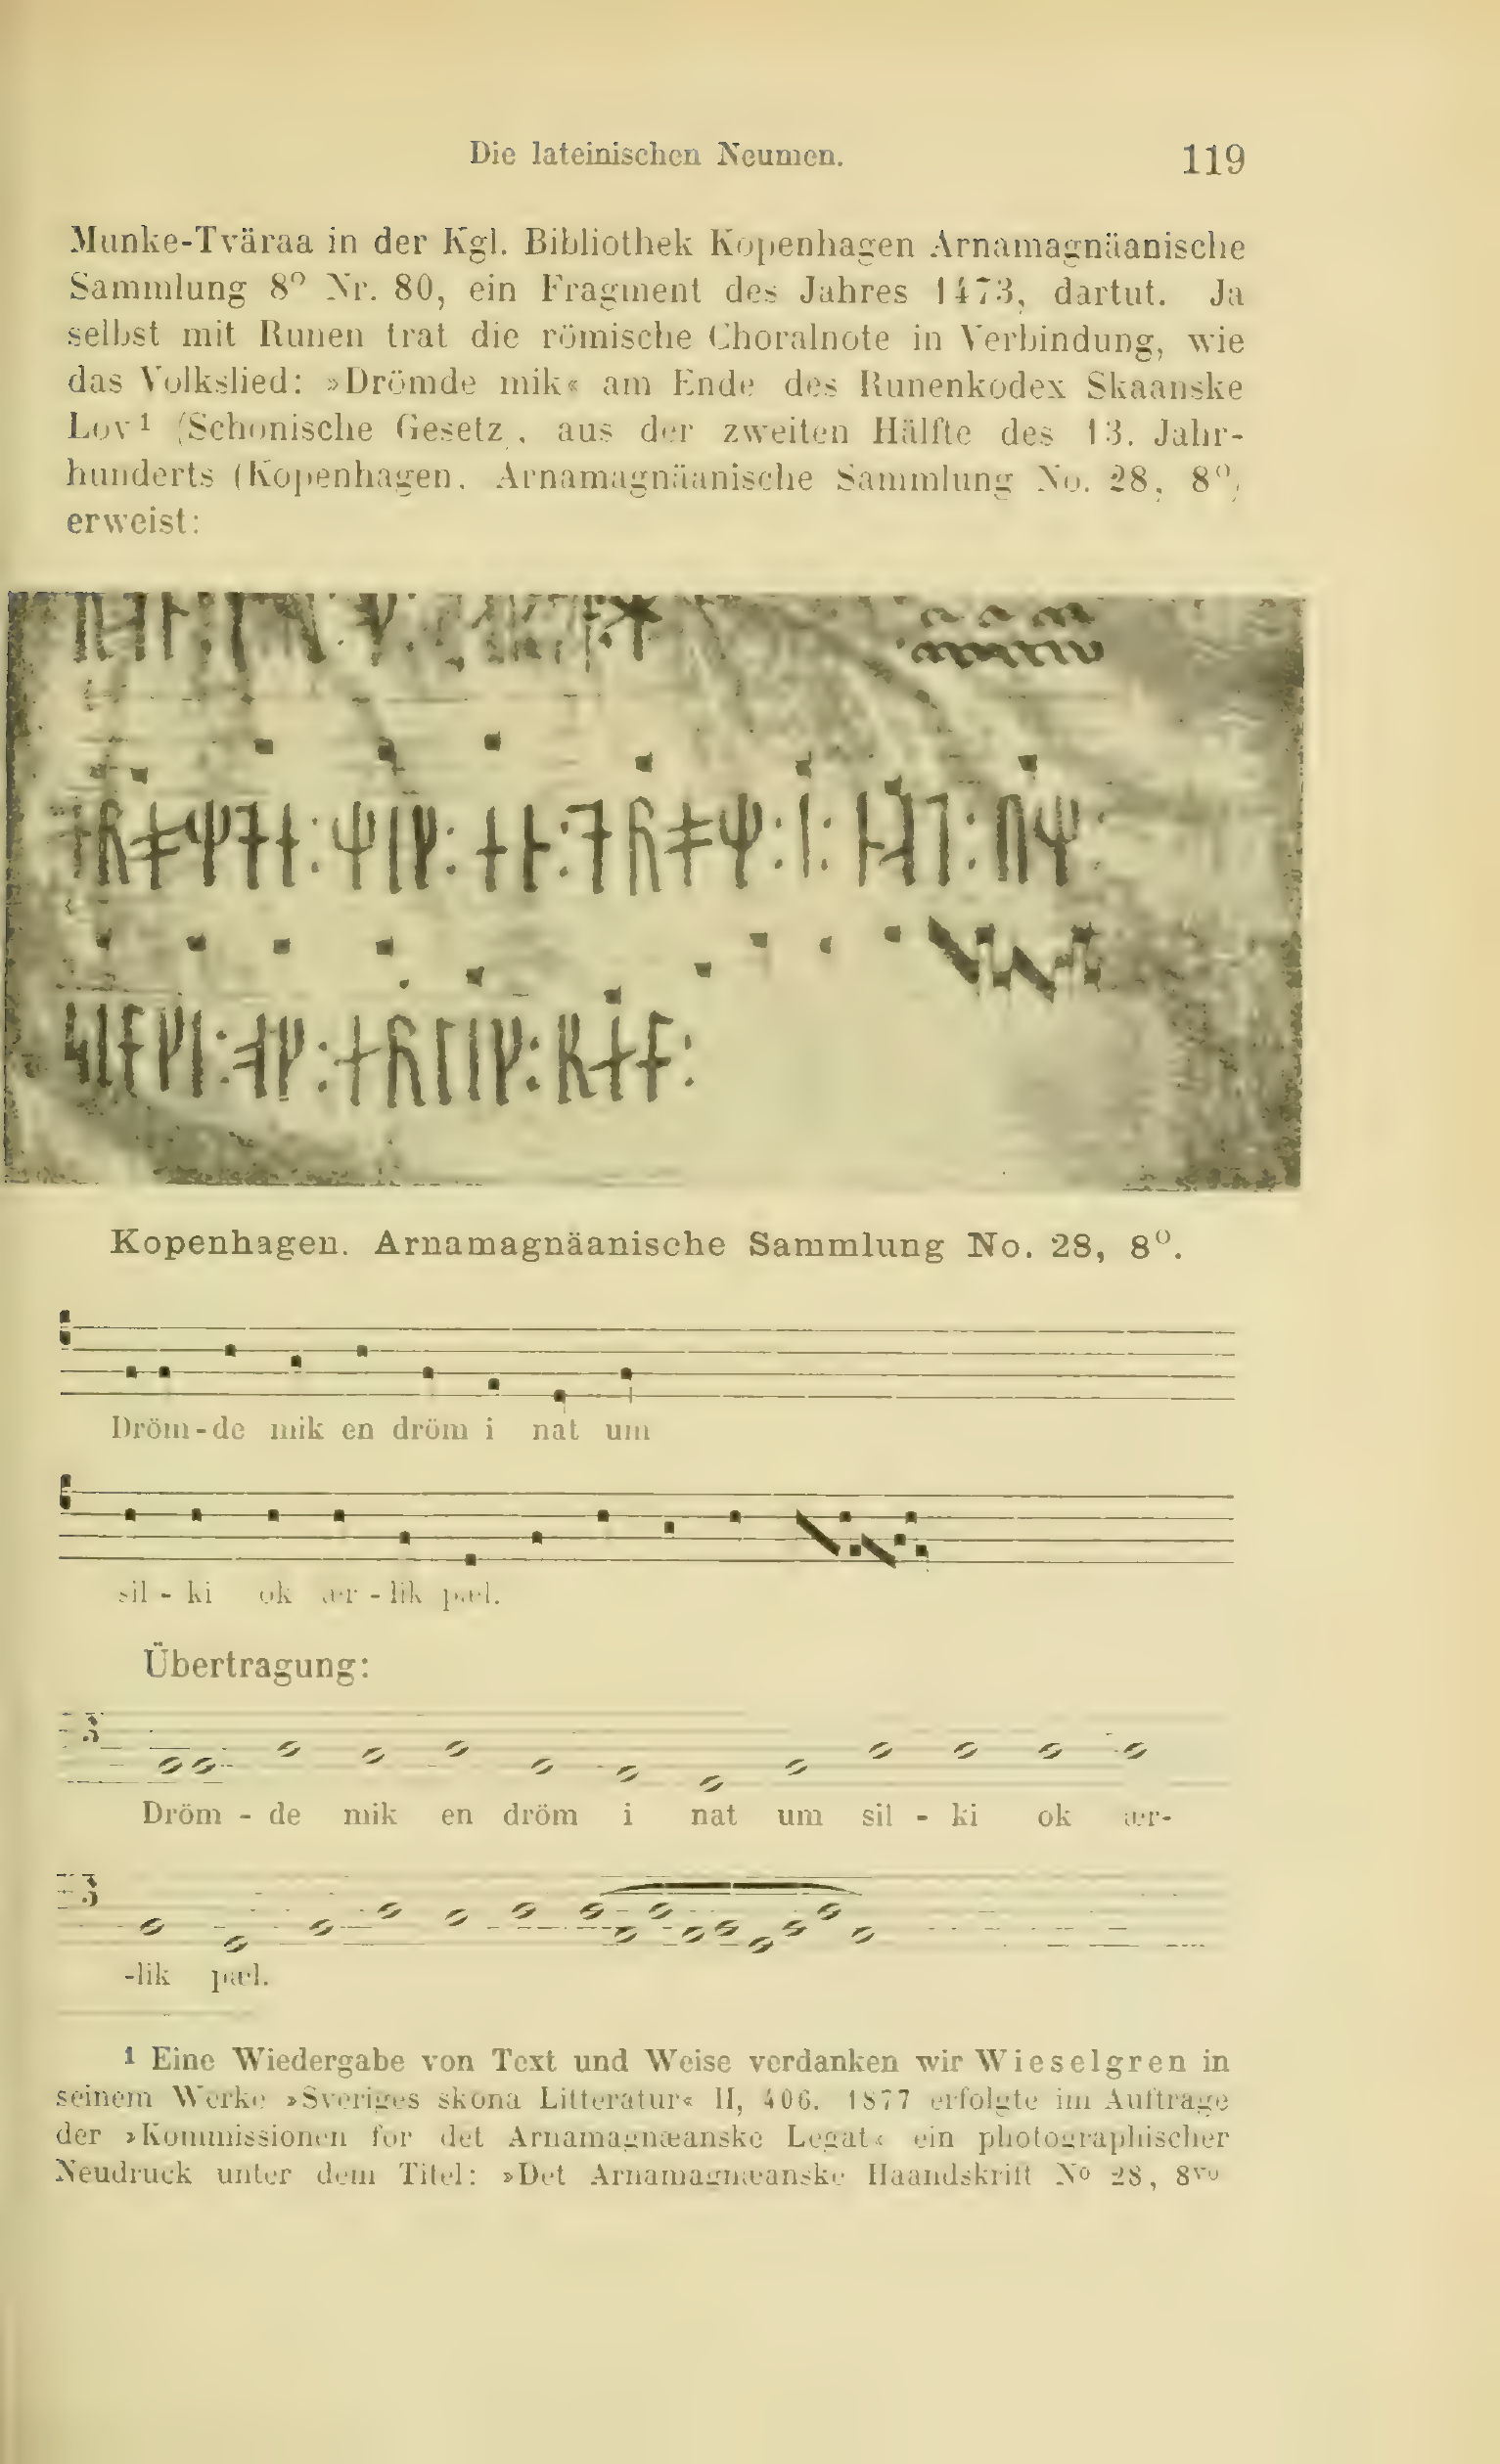 Die lateinischen Neumen. 119
Munke-Tväraa in der Kgl. Bibliothek Kopenhagen Arnamagnäanische
Sammlung 8⁰ Nr. 80, ein Fragment des Jahres 1473, dartut. Ja
selbst mit Runen trat die römische Choralnote in Verbindung, wie
das Volkslied: »Drömde mik« am Ende des Runenkodex Skaanske
Lov¹ (Schonische Gesetz), aus der zweiten Hälfte des 13. Jahr-
hunderts (Kopenhagen, Arnamagnäanische Sammlung No. 28, 8⁰,
erweist:
ᛁ:
Kopenhagen. Arnamagnäanische Sammlung No. 28, 8⁰.
Dröm-de mik en dröm i nat um
sil - ki ok ær - lik pæl.
Übertragung:
Dröm - de mik en dröm i nat um sil - ki ok ær-
-lik pæl.
¹ Eine Wiedergabe von Text und Weise verdanken wir Wieselgren in
seinem Werke »Sveriges skona Litteratur« II, 406. 1877 erfolgte im Auftrage
der »Kommissionen for det Arnamagnæanske Legat« ein photographischer
Neudruck unter dem Titel: »Det Arnamagnæanske Haandskrift N⁰ 28, 8ᵛᵒ